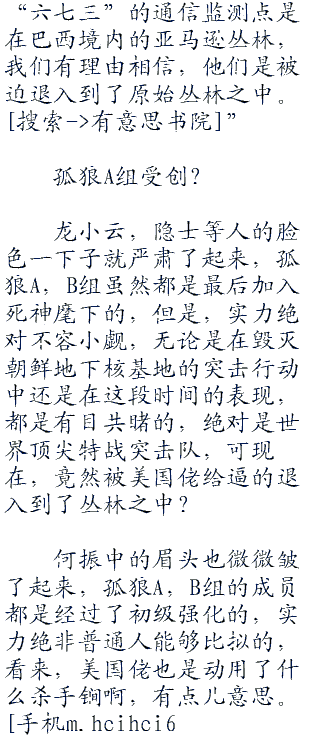 “六七三”的通信监测点是
在巴西境内的亚马逊丛林，
我们有理由相信，他们是被
迫退入到了原始丛林之中。
[搜索->有意思书院]”
孤狼A组受创？
龙小云，隐士等人的脸
色一下子就严肃了起来，孤
狼A，B组虽然都是最后加入
死神麾下的，但是，实力绝
对不容小觑，无论是在毁灭
朝鲜地下核基地的突击行动
中还是在这段时间的表现，
都是有目共睹的，绝对是世
界顶尖特战突击队，可现
在，竟然被美国佬给逼的退
入到了丛林之中？
何振中的眉头也微微皱
了起来，孤狼A，B组的成员
都是经过了初级强化的，实
力绝非普通人能够比拟的，
看来，美国佬也是动用了什
么杀手锏啊，有点儿意思。
[手机m.hcihci6